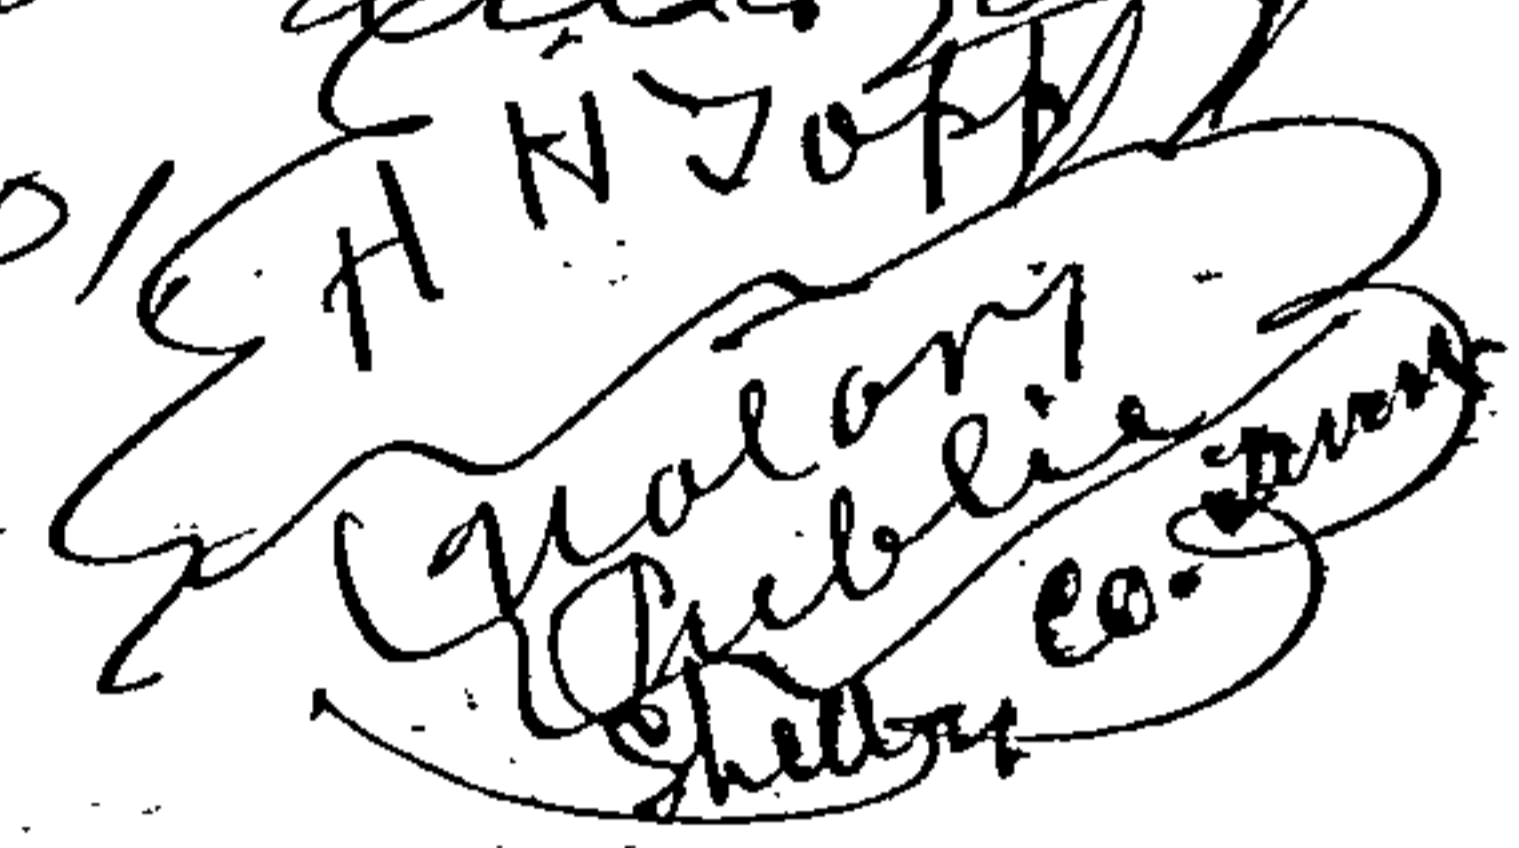 H H Topp
Notary
Public
Shelby Co. Tenn